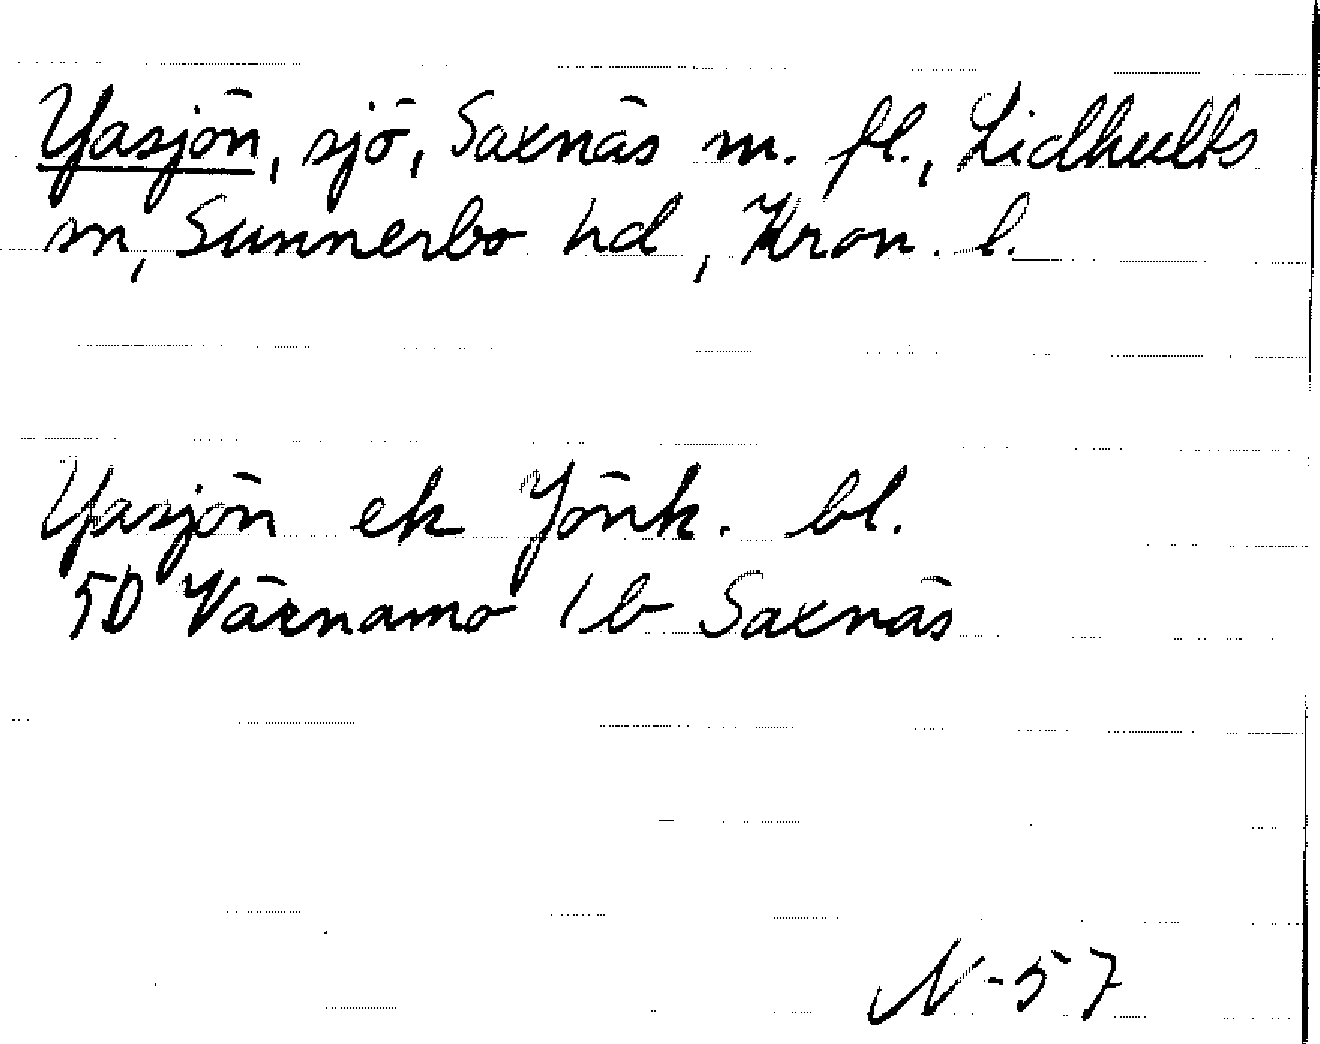 Yasjön, sjö, Saxnäs m. fl., Lidhults
sn, Sunnerbo hd, Kron. l.
Yasjön ek Jönk. bl.
5D Värnamo 1b Saxnäs
N-57